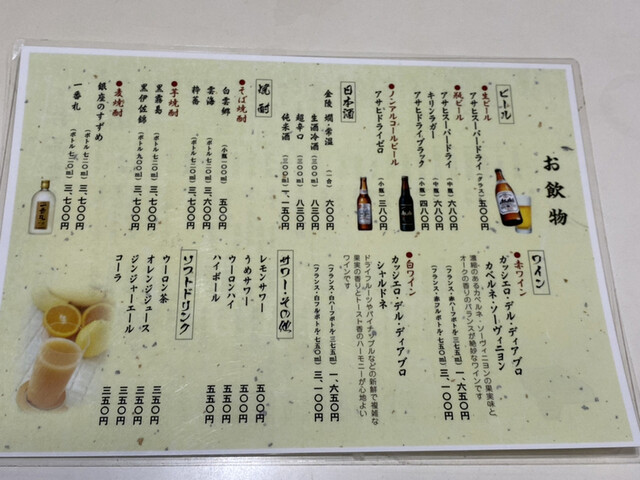 お飲物
ビール
●生ビール
アサヒスーパードライ（グラス）五〇〇円
●瓶ビール
アサヒスーパードライ（中瓶）六八〇円
キリンラガー（中瓶）六八〇円
アサヒドライブラック（小瓶）四八〇円
●ノンアルコールビール
アサヒドライゼロ（小瓶）三八〇円
日本酒
金陵 燗・常温（一合）六〇〇円
生酒冷酒（三〇〇㎖）八三〇円
超辛口（三〇〇㎖）八三〇円
純米酒（三〇〇㎖）一、一五〇円
焼酎
●そば焼酎
白雲郷（小瓶二〇〇㎖）五〇〇円
雲海（ボトル七二〇㎖）三、一〇〇円
粋蕎（ボトル七二〇㎖）三、七〇〇円
●芋焼酎
黒霧島（ボトル七二〇㎖）三、七〇〇円
黒伊佐錦（ボトル九〇〇㎖）三、七〇〇円
●麦焼酎
銀座のすずめ（ボトル七二〇㎖）三、七〇〇円
一番札（ボトル七二〇㎖）三、七〇〇円
ワイン
●赤ワイン
カッシエロ・デル・ディアブロ
カベルネ・ソーヴィニヨン
濃縮のあるカベルネ・ソーヴィニヨンの果実味と
オークの香りのバランスが絶妙なワインです
（フランス・赤ハーフボトル・三七五㎖）一、六五〇円
（フランス・赤フルボトル・七五〇㎖）三、一〇〇円
●白ワイン
カッシエロ・デル・ディアブロ
シャルドネ
ドライフルーツやパイナップルなどの新鮮で複雑な
果実の香りとトースト香のハーモニーが心地よい
ワインです
（フランス・白ハーフボトル・三七五㎖）一、六五〇円
（フランス・白フルボトル・七五〇㎖）三、一〇〇円
サワー・その他
レモンサワー 五〇〇円
うめサワー 五〇〇円
ウーロンハイ 五五〇円
ハイボール 五五〇円
ソフトドリンク
ウーロン茶 三五〇円
オレンジジュース 三五〇円
ジンジャーエール 三五〇円
コーラ 三五〇円